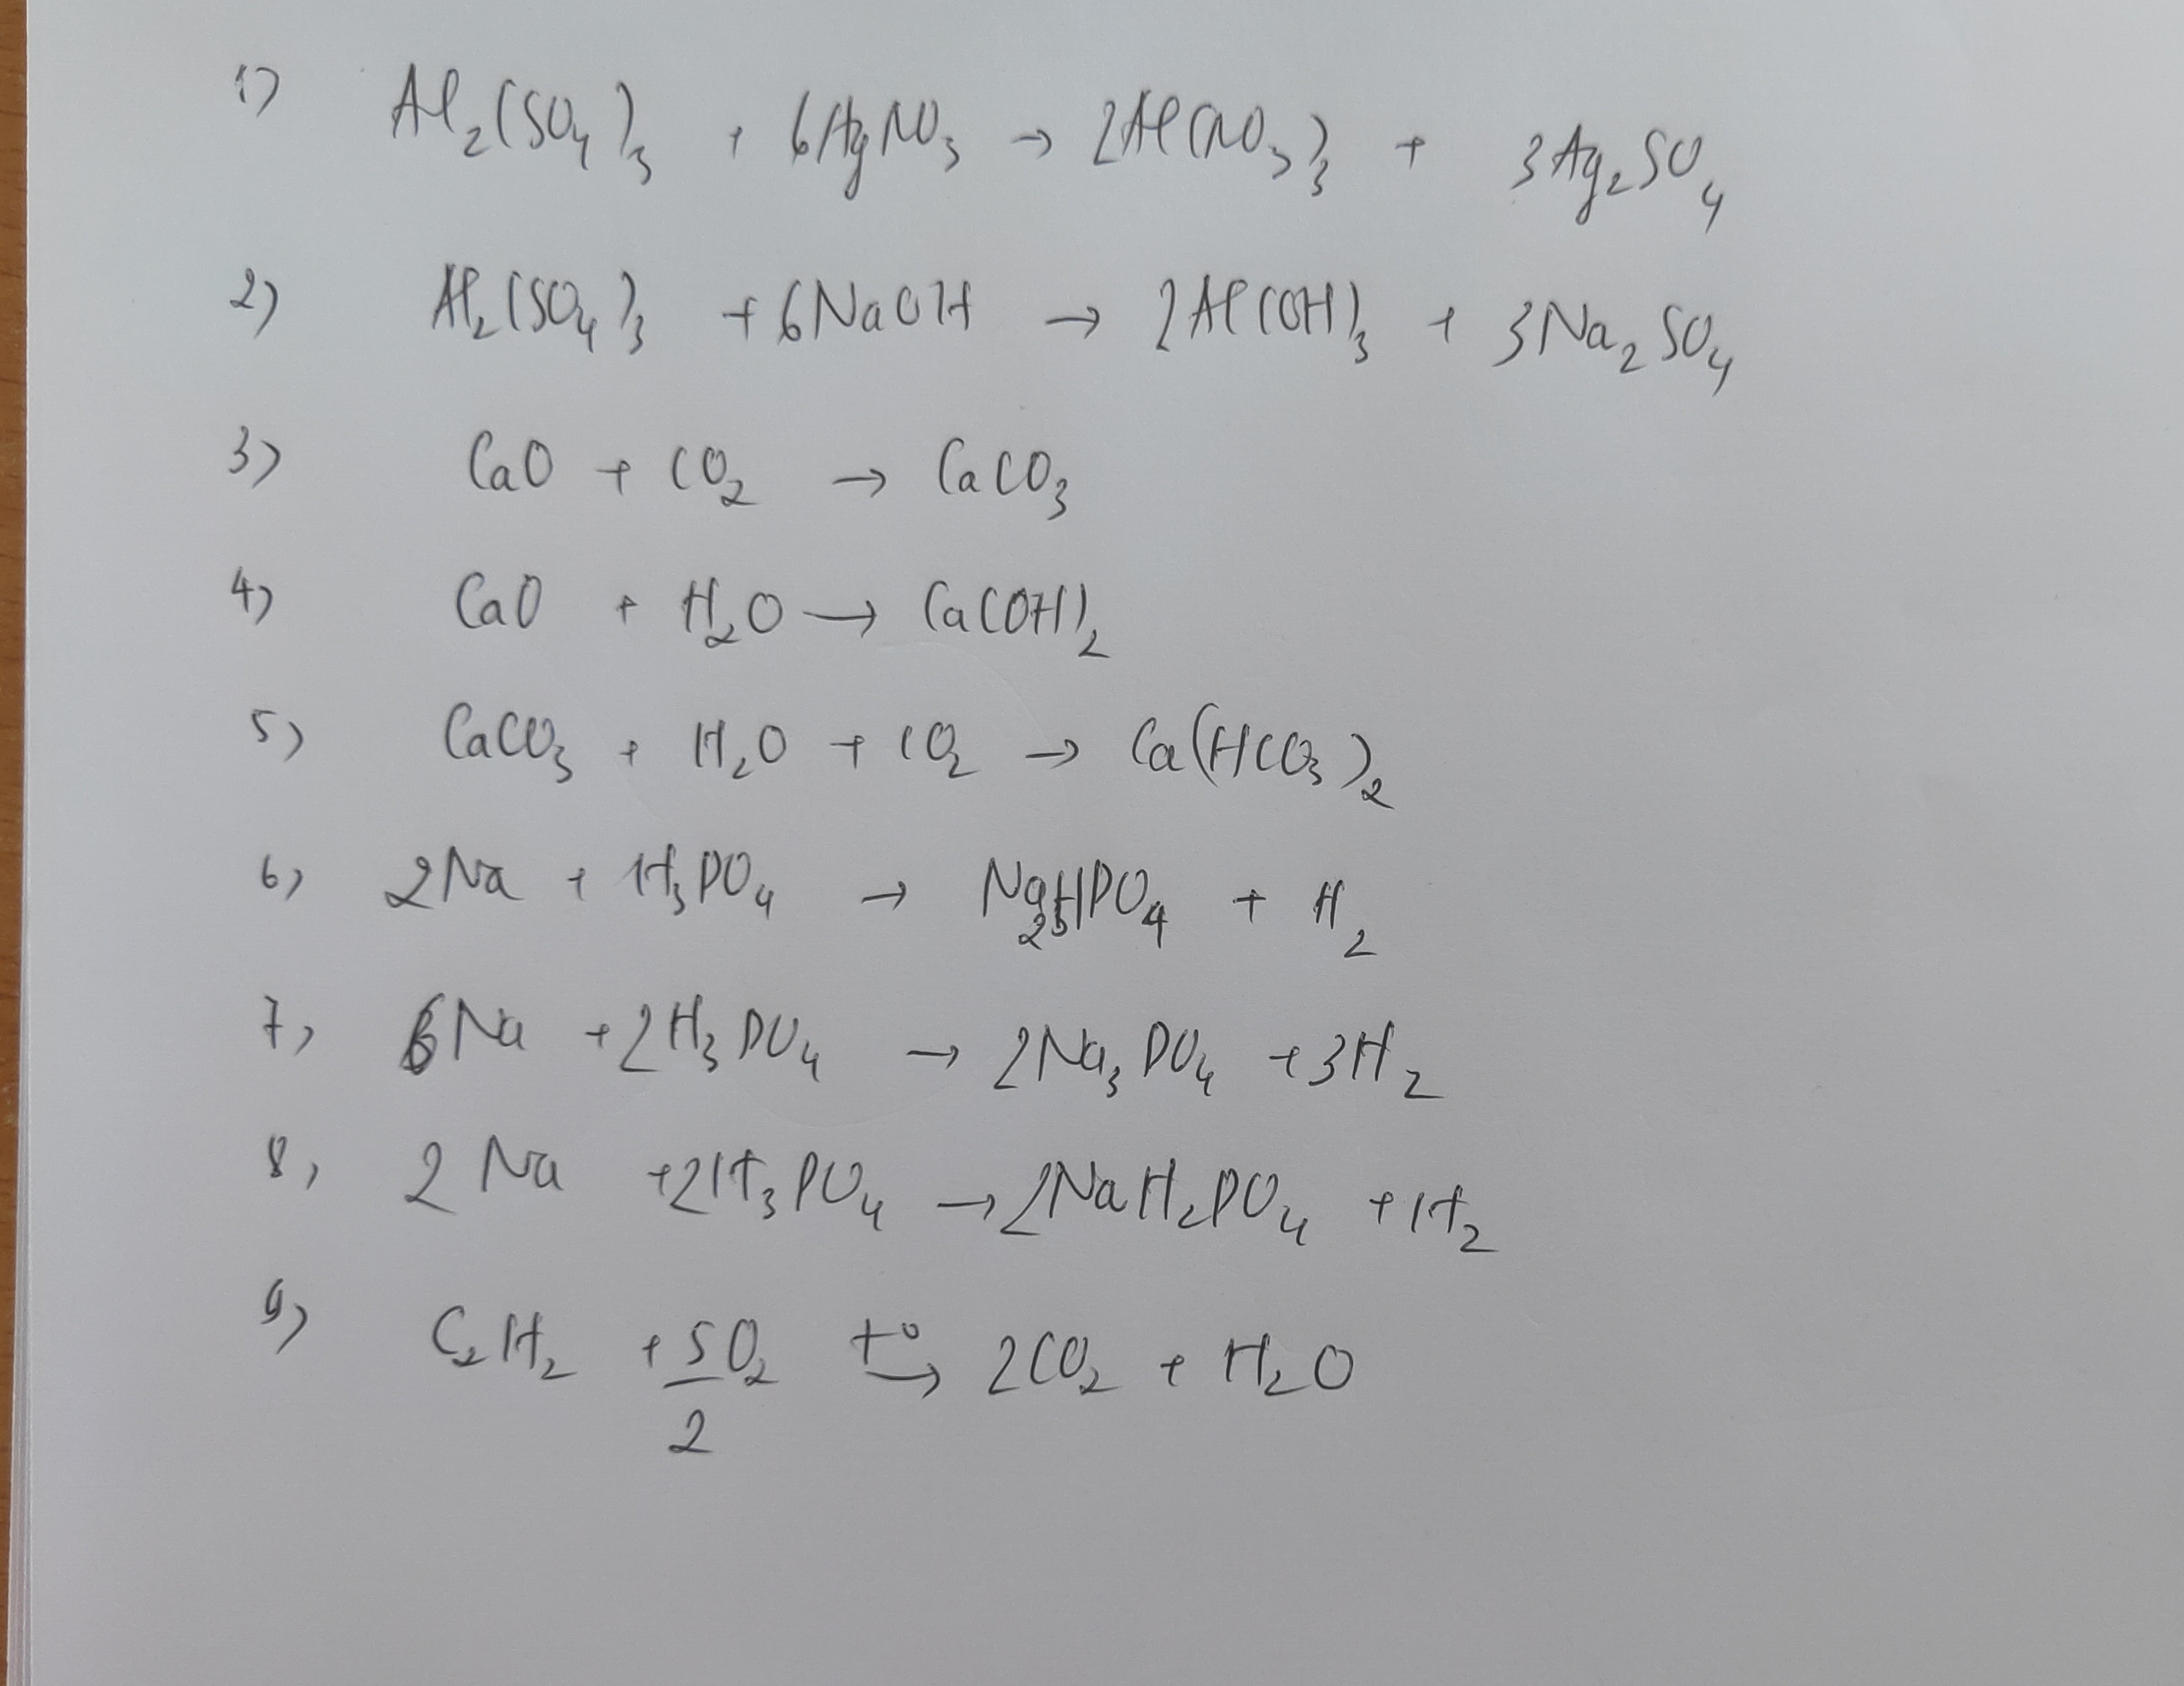 1) Al₂(SO₄)₃ + 6AgNO₃ → 2Al(NO₃)₃ + 3Ag₂SO₄
2) Al₂(SO₄)₃ + 6NaOH → 2Al(OH)₃ + 3Na₂SO₄
3) CaO + CO₂ → CaCO₃
4) CaO + H₂O → Ca(OH)₂
5) CaCO₃ + H₂O + CO₂ → Ca(HCO₃)₂
6) 2Na + H₃PO₄ → Na₂HPO₄ + H₂
7) 6Na + 2H₃PO₄ → 2Na₃PO₄ + 3H₂
8) 2Na + 2H₃PO₄ → 2NaH₂PO₄ + H₂
9) C₂H₂ + 5/2 O₂ t°→ 2CO₂ + H₂O